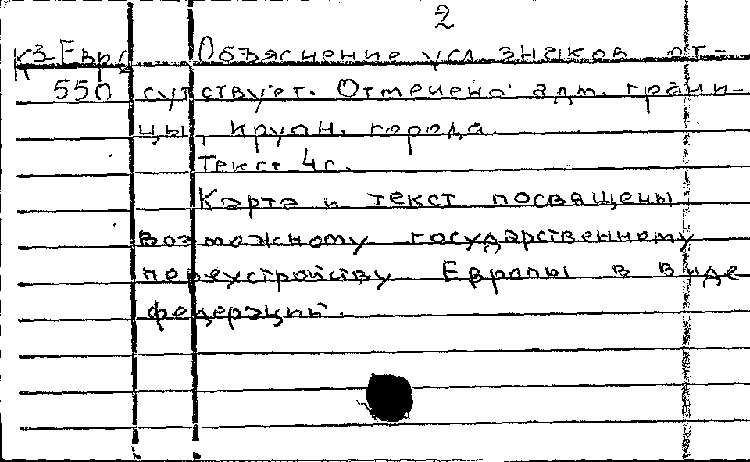 2
К3-Евр Объяснение усл. знаков от-
550 сутствует. Отмечено: адм. грани-
цы, крупн. города.
Текст 4с.
Карта и текст посвящены
возможному государственному
переустройству Европы в виде
федерации.